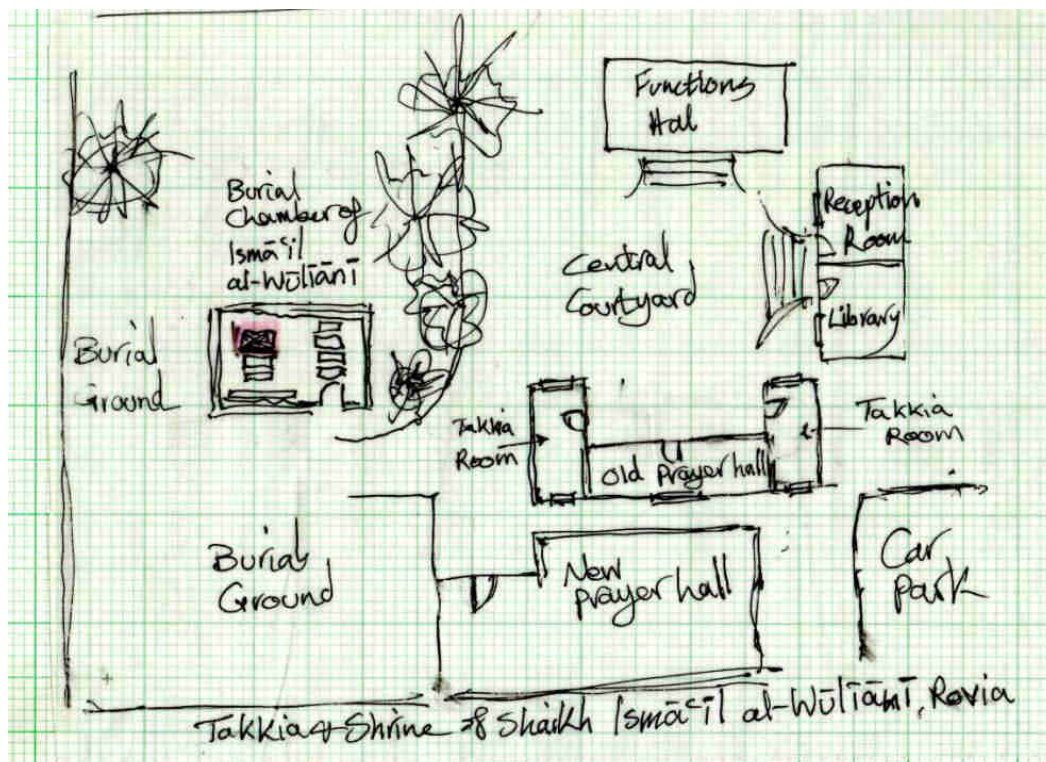 Functions
Hal
Burial
Chamber of
Ismāʿīl
al-Wūlīānī
Reception
Room
Central
Courtyard
Library
Burial
Ground
Takkia
Room
Takkia
Room
Old Prayer hall
Burial
Ground
New
Prayer hall
Car
Park
Takkia & Shrine of Shaikh Ismāʿīl al-Wūlīānī, Rovia